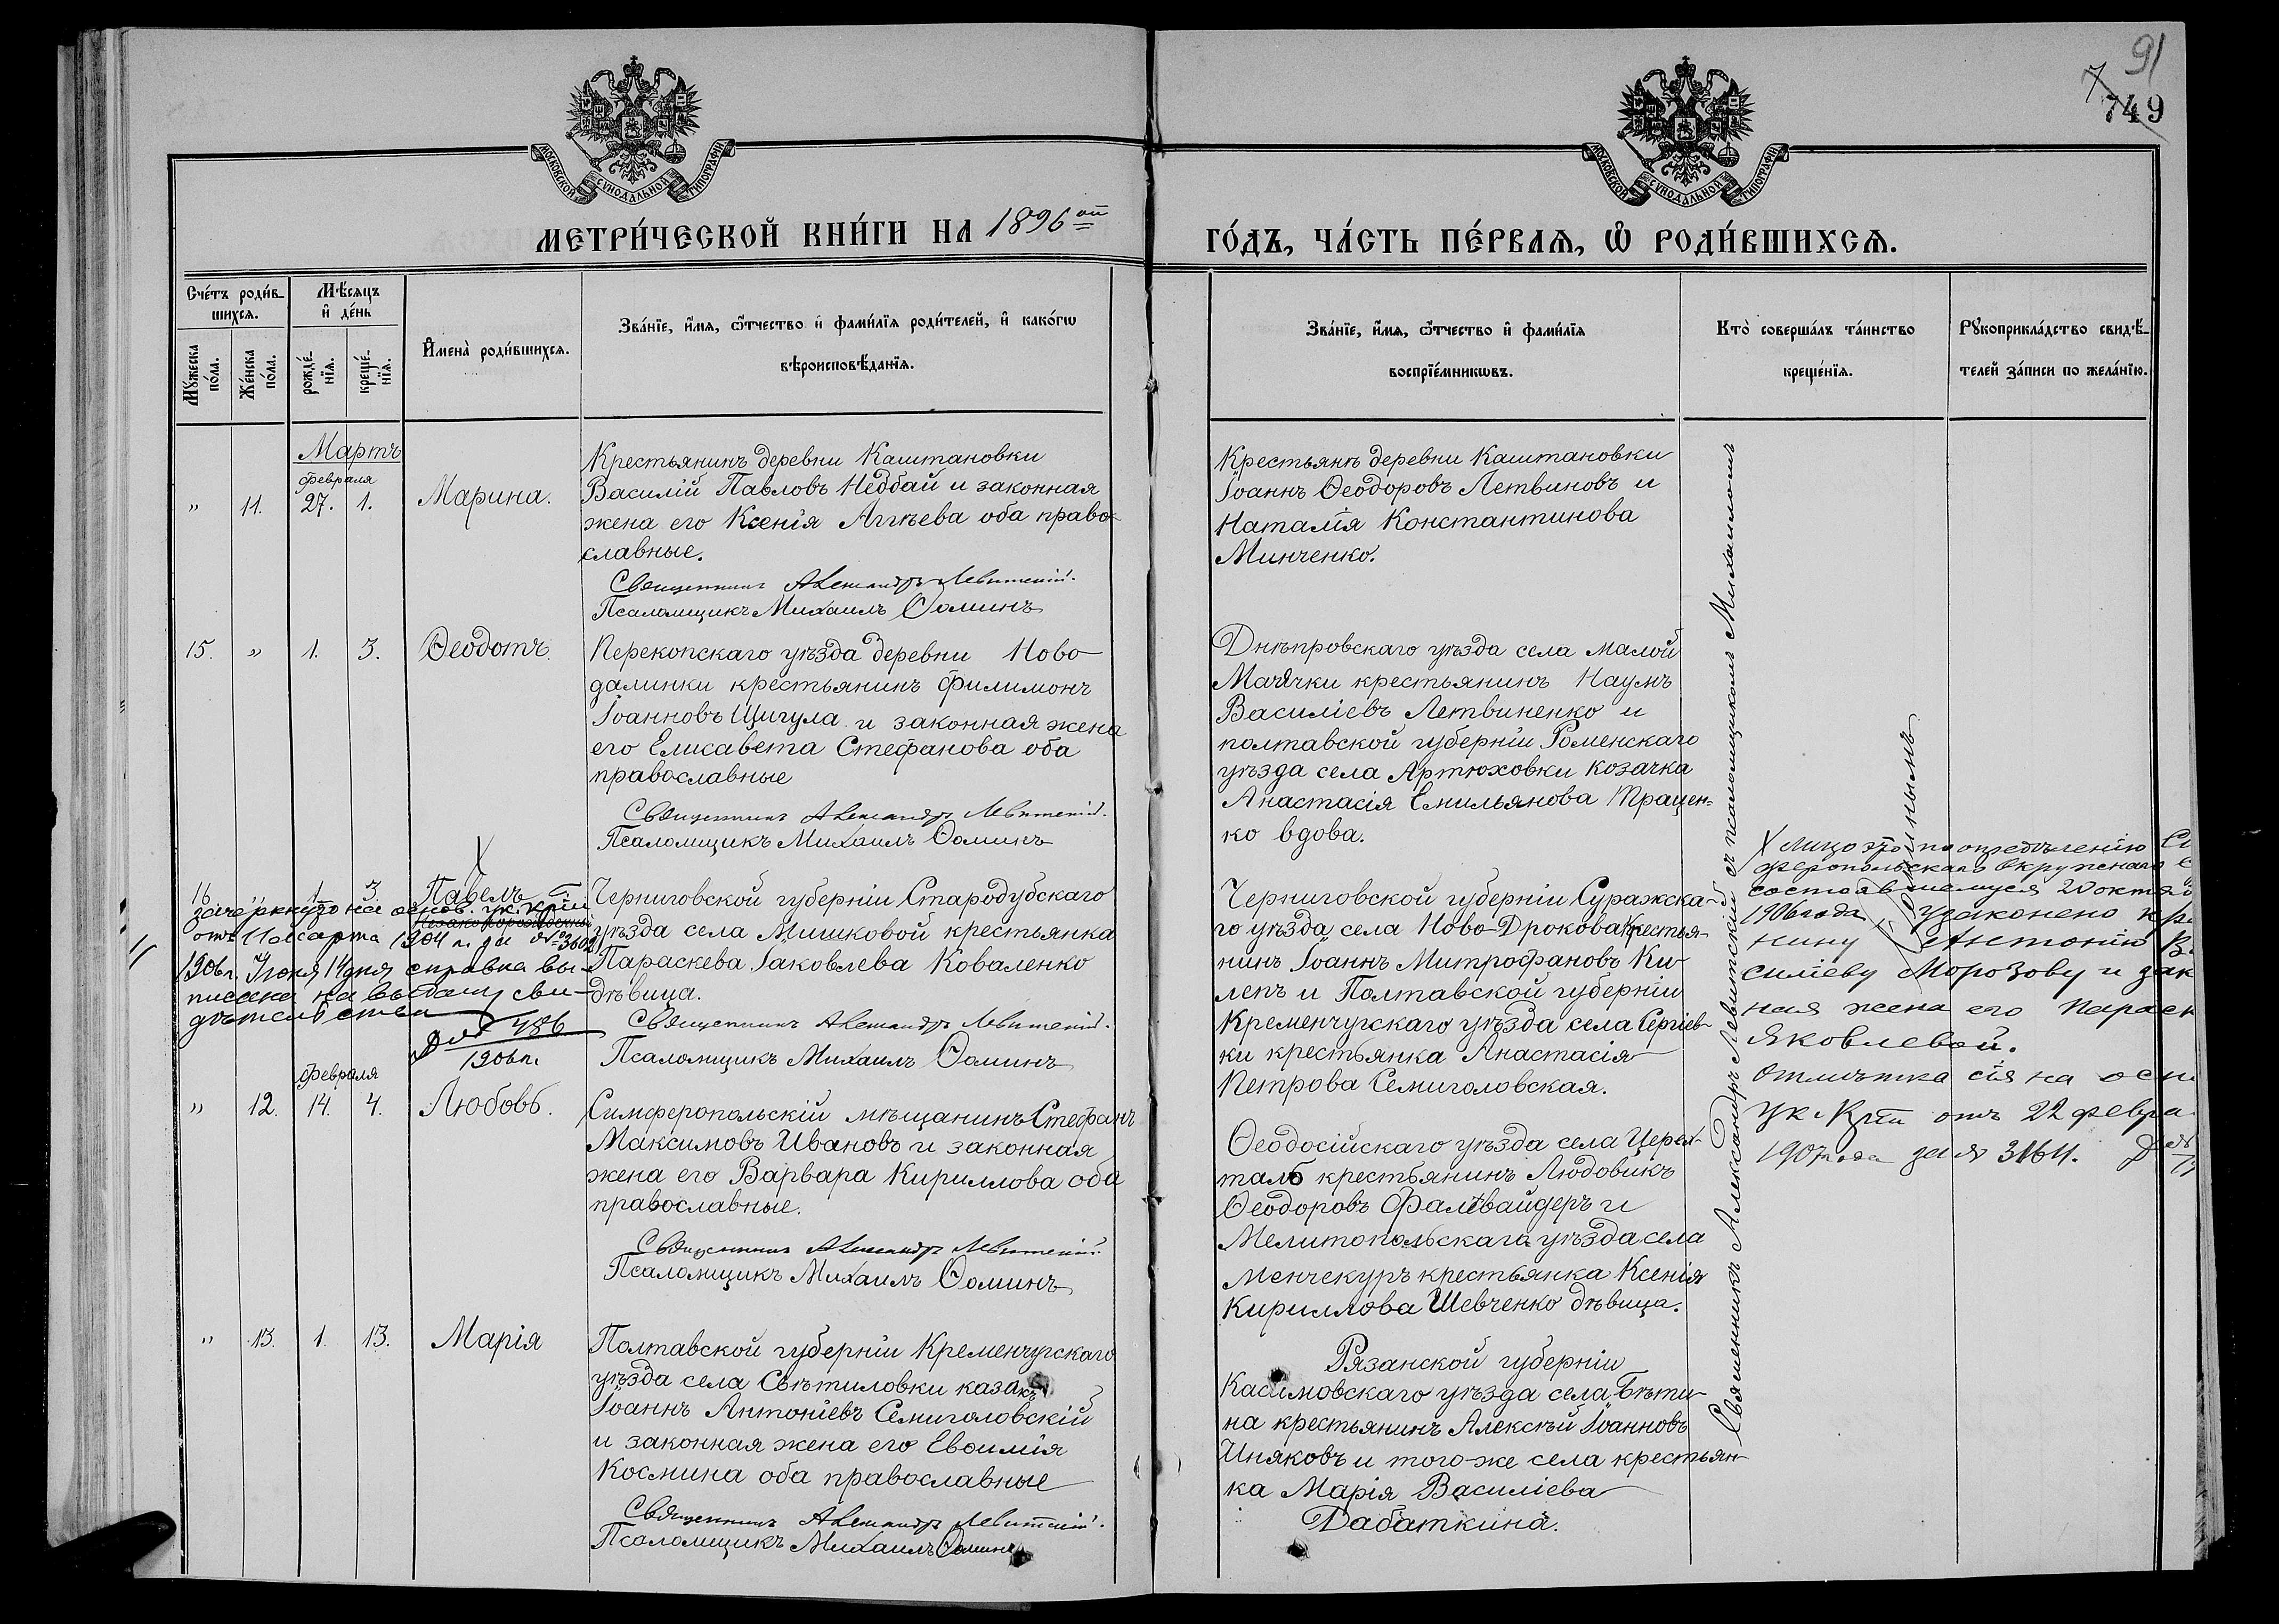 91
7
749
МОСКОВСКОЙ СѴНОДАЛЬНОЙ ТИПОГРАФІИ
МОСКОВСКОЙ СѴНОДАЛЬНОЙ ТИПОГРАФІИ
МЕТРИ́ЧЕСКОЙ КНИ́ГИ НА 1896ой
ГО́ДЪ, ЧА́СТЬ ПЕ́РВАѦ, Ѽ РОДИ́ВШИХСѦ.
Сче́тъ роди́в-
шихсѧ.
Мꙋ́жеска
по́ла.
Же́нска
по́ла.
Мѣ́сѧцъ
и҆ де́нь
рожде́-
нїѧ.
креще́-
нїѧ.
И҆мена̀ роди́вшихсѧ.
Зва́нїе, и҆́мѧ, ѻ҆́тчество и҆ фами́лїѧ роди́телей, и҆ како́гѡ
вѣроисповѣ́данїѧ.
Зва́нїе, и҆́мѧ, ѻ҆́тчество и҆ фами́лїѧ
воспрїе́мникѡвъ.
Кто̀ соверша́лъ та́инство
креще́нїѧ.
Рꙋкоприкла́дство свидѣ́-
телей за́писи по жела́нїю.
Мартъ
февраля
" 11. 27. 1. Марина.
Крестьянинъ деревни Каштановки
Василій Павловъ Недбай и законная
жена его Ксенія Аггѣева оба право-
славные.
Священникъ Александръ Левитскій.
Псаломщикъ Михаилъ Ѳоминъ
Крестьянѣ деревни Каштановки
Іоаннъ Ѳеодоровъ Летвиновъ и
Наталія Константинова
Минченко.
15. " 1. 3. Ѳеодотъ.
Перекопскаго уѣзда деревни Ново-
далинки крестьянинъ Филимонъ
Іоанновъ Щигула и законная жена
его Елисавета Стефанова оба
православные
Священникъ Александръ Левитскій.
Псаломщикъ Михаилъ Ѳоминъ
Днѣпровскаго уѣзда села Малой
Маячки крестьянинъ Наумъ
Василіевъ Летвиненко и
полтавской губерніи Роменскаго
уѣзда села Артюховки козачка
Анастасія Емильянова Трацен-
ко вдова.
16 " 1 3. Павелъ
незаконорожденный
зачеркнуто на основ. ук. Кріи
отъ 11 марта 1904 г. за № 3602
1906 г. Іюня 14 дня справка вы-
писана на выдачу сви-
дѣтельства
Д № 486
1906 г.
Черниговской губерніи Стародубскаго
уѣзда села Мишковой крестьянка
Параскева Іаковлева Коваленко
дѣвица.
Священникъ Александръ Левитскій.
Псаломщикъ Михаилъ Ѳоминъ
Черниговской губерніи Суражска-
го уѣзда села Ново-Дрокова крестья-
нинъ Іоаннъ Митрофановъ Ки-
лепъ и Полтавской губерніи
Кременчугскаго уѣзда села Сергіев-
ки крестьянка Анастасія
Петрова Семиголовская.
Х Лицо это по опредѣленію Си
феропольскаго Окружнаго С
состоявшемуся 20 октяб
1906 года узаконено кре
нину Антонію Ва
силіеву Морозову и зак
ная жена его Параск
Яковлевой.
Отмѣтка сія на осн
ук. Кріи отъ 22 февра
1907 года за № 3164. Д №
февраля
" 12. 14. 4. Любовь.
Симферопольскій мѣщанинъ Стефанъ
Максимовъ Ивановъ и законная
жена его Варвара Кириллова оба
православные.
Священникъ Александръ Левитскій
Псаломщикъ Михаилъ Ѳоминъ
Ѳеодосійскаго уѣзда села Церех-
таль крестьянинъ Людовикъ
Ѳеодоровъ Фалвайдеръ и
Мелитопольскаго уѣзда села
Менчекуръ крестьянка Ксенія
Кириллова Шевченко дѣвица.
" 13. 1. 13. Марія
Полтавской губерніи Кременчугскаго
уѣзда села Свѣтиловки казакъ
Іоаннъ Антоніевъ Семиголовскій
и законная жена его Евѳимія
Космина оба православные
Священникъ Александръ Левитскій.
Псаломщикъ Михаилъ Ѳоминъ
Рязанской губерніи
Касимовскаго уѣзда села Бѣти-
на крестьянинъ Алексѣй Іоанновъ
Иняковъ и того-же села крестьян-
ка Марія Василіева
Дабаткина.
Священникъ Александръ Левитскій съ псаломщикомъ Михаиломъ
Ѳоминымъ